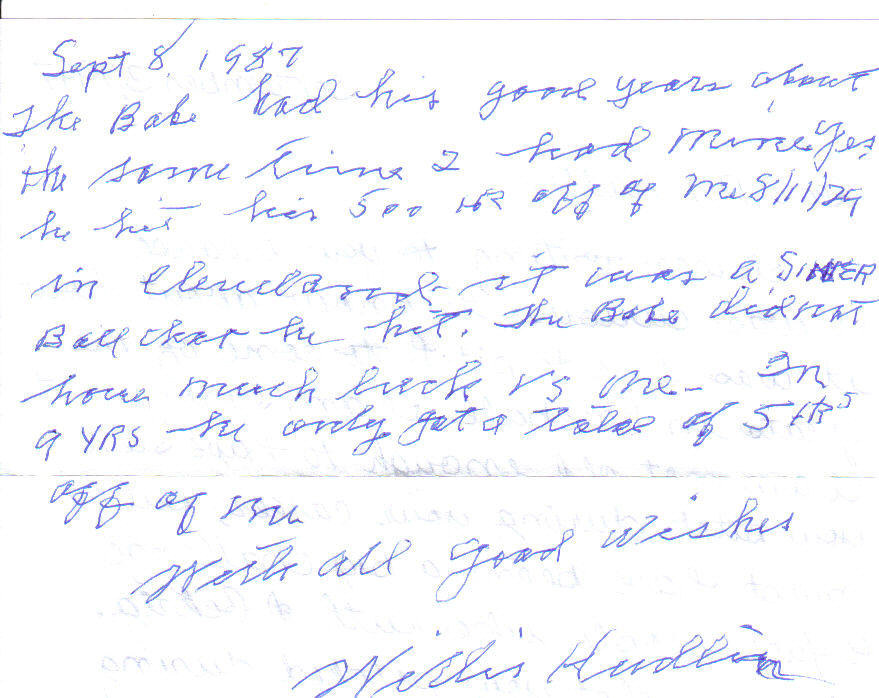 Sept 8, 1987
The Babe had his good years about
the same time I had mine Yes,
he hit his 500 HR off of me 8/11/29
in Cleveland - it was a SINKER
Ball that he hit. The Babe did not
have much luck vs me - In
9 YRS he only got a total of 5 HRS
off of me
With all good wishes
Willis Hudlin